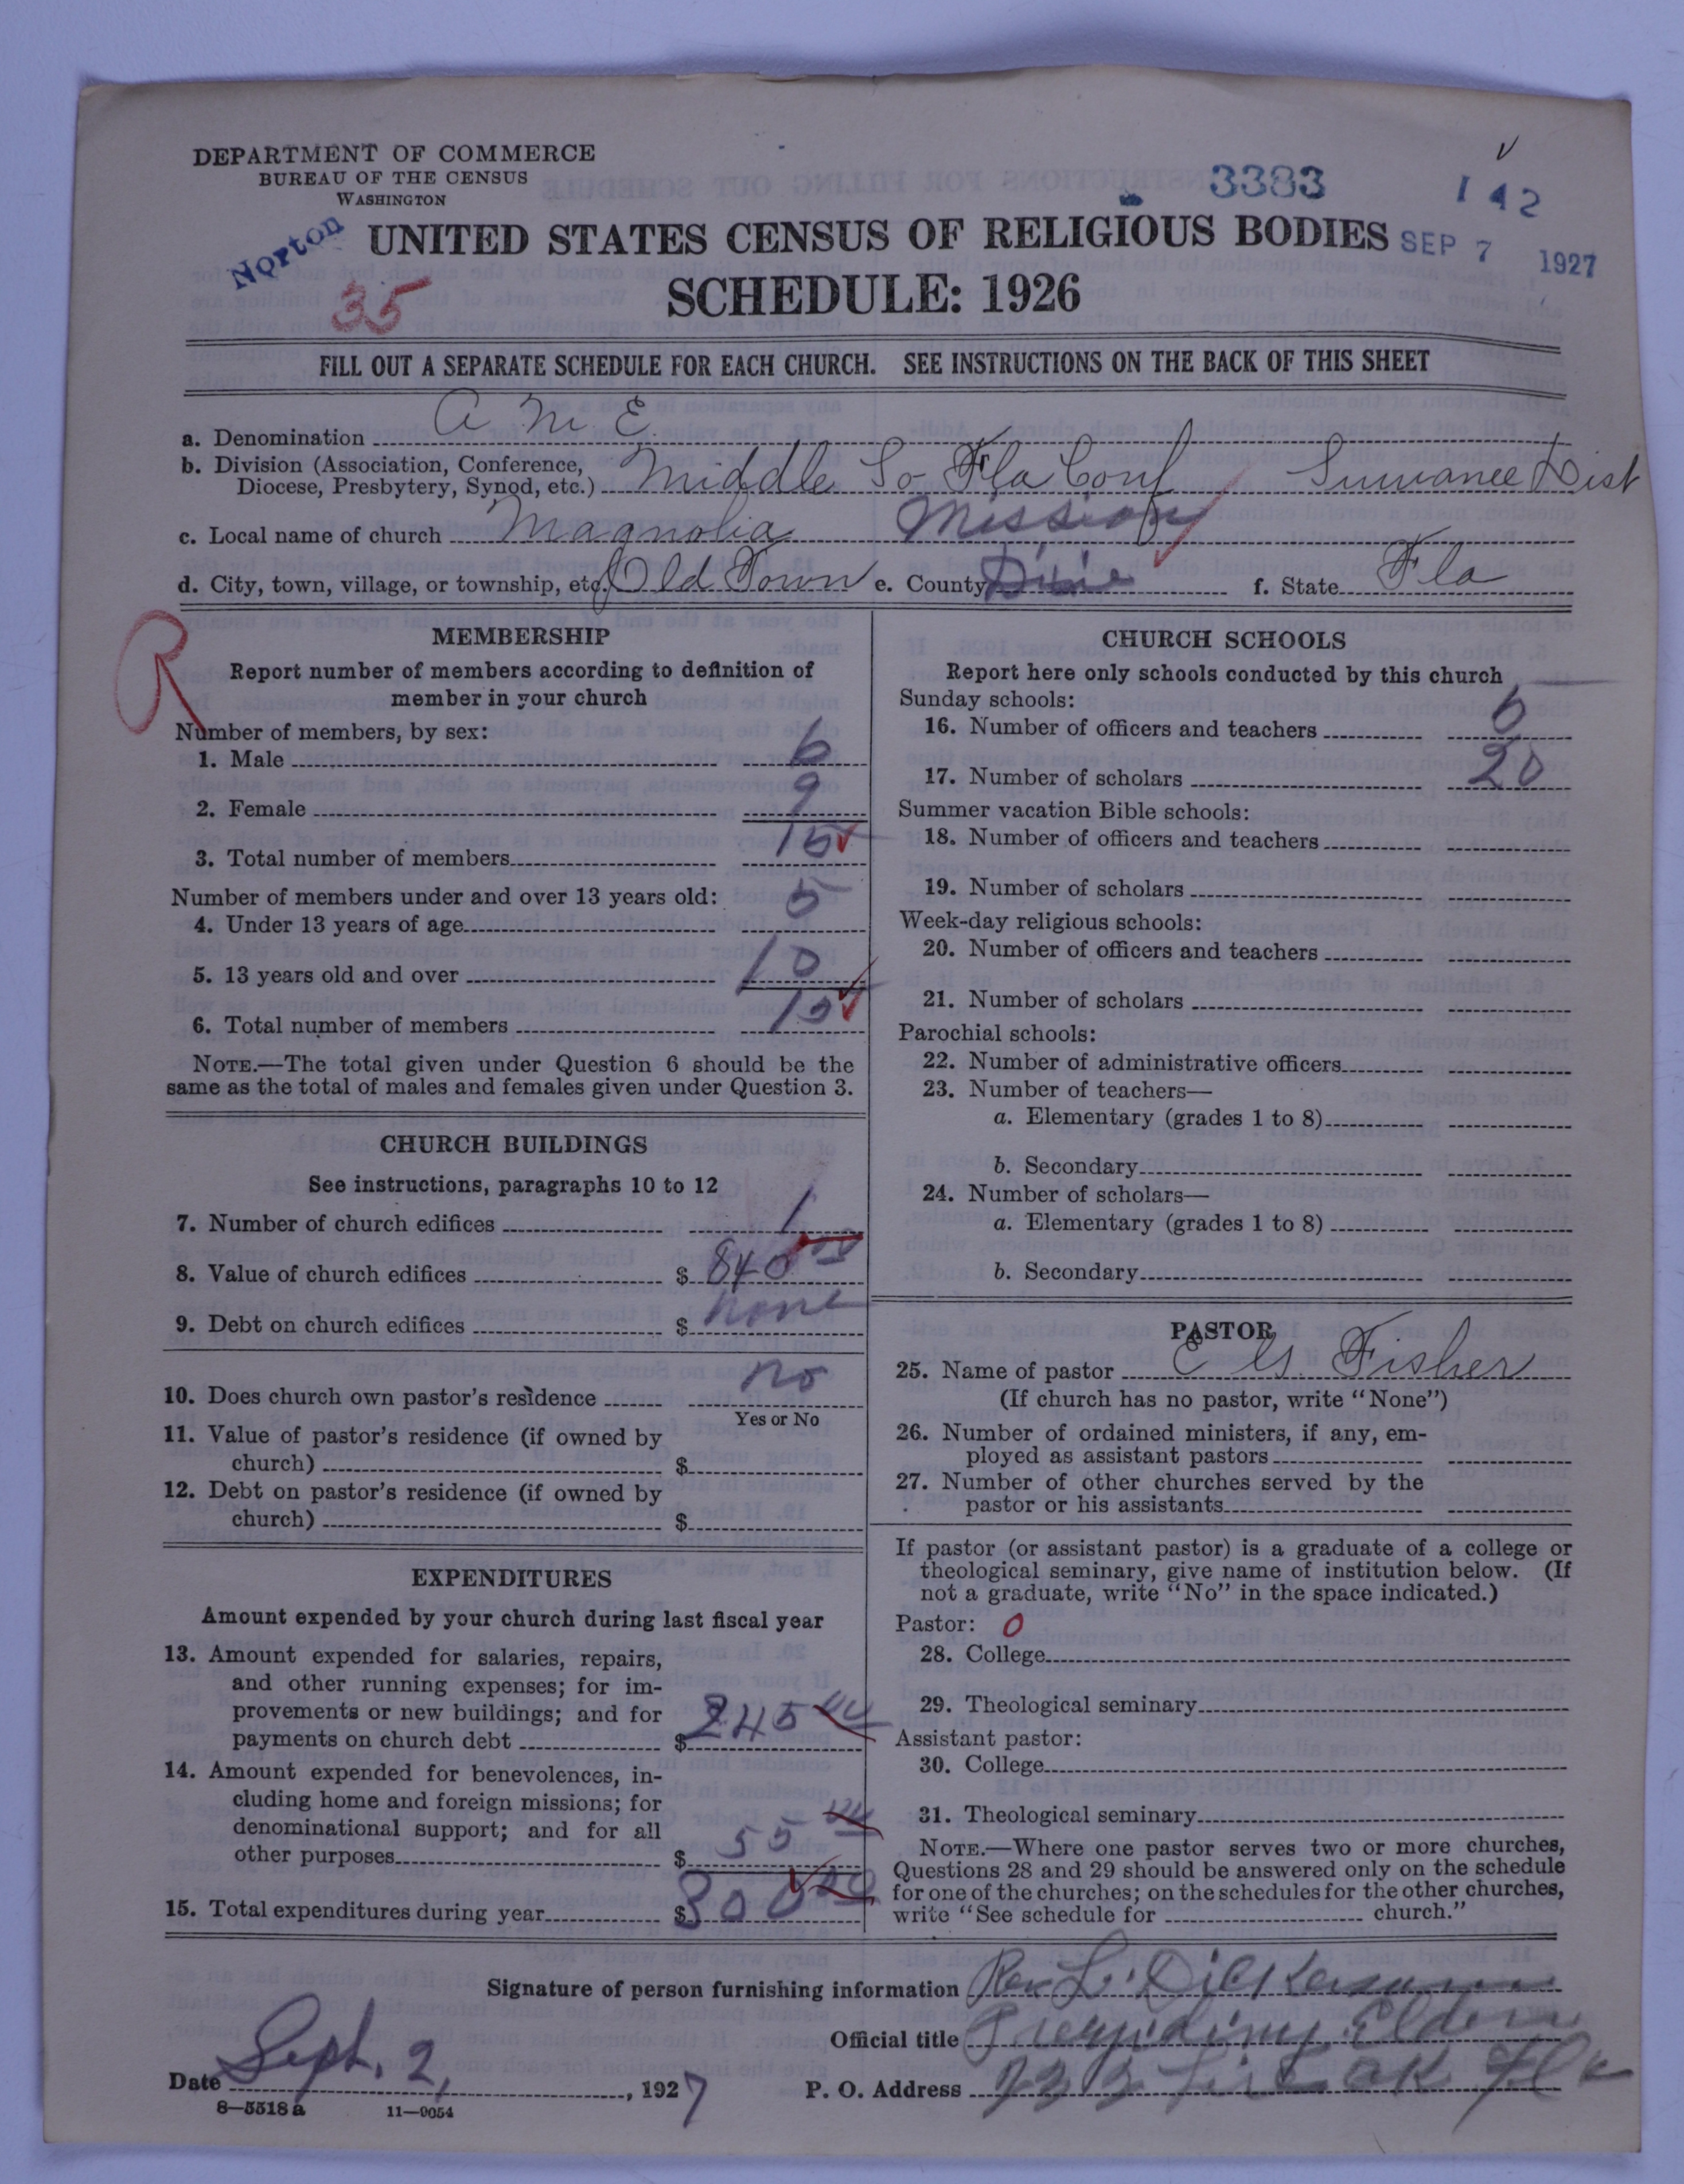 DEPARTMENT OF COMMERCE
BUREAU OF THE CENSUS
WASHINGTON
3383
142
Norton
UNITED STATES CENSUS OF RELIGIOUS BODIES
SEP 7 1927
35
SCHEDULE: 1926
FILL OUT A SEPARATE SCHEDULE FOR EACH CHURCH. SEE INSTRUCTIONS ON THE BACK OF THIS SHEET
a. Denomination A M E
b. Division (Association, Conference,
Diocese, Presbytery, Synod, etc.) Middle So Fla Conf Suwanee Dist
c. Local name of church Magnolia Mission
d. City, town, village, or township, etc. Old Town e. County Dixie f. State Fla
R
MEMBERSHIP
Report number of members according to definition of
member in your church
Number of members, by sex:
1. Male 6
2. Female 9
3. Total number of members 15
Number of members under and over 13 years old:
4. Under 13 years of age 5
5. 13 years old and over 10
6. Total number of members 15
NOTE.—The total given under Question 6 should be the
same as the total of males and females given under Question 3.
CHURCH BUILDINGS
See instructions, paragraphs 10 to 12
7. Number of church edifices 1
8. Value of church edifices $ 840
9. Debt on church edifices $ none
10. Does church own pastor's residence no
Yes or No
11. Value of pastor's residence (if owned by
church) $
12. Debt on pastor's residence (if owned by
church) $
EXPENDITURES
Amount expended by your church during last fiscal year
13. Amount expended for salaries, repairs,
and other running expenses; for im-
provements or new buildings; and for
payments on church debt $ 245 00
14. Amount expended for benevolences, in-
cluding home and foreign missions; for
denominational support; and for all
other purposes $ 55 00
15. Total expenditures during year $ 300 00
CHURCH SCHOOLS
Report here only schools conducted by this church
Sunday schools:
16. Number of officers and teachers 6
17. Number of scholars 20
Summer vacation Bible schools:
18. Number of officers and teachers
19. Number of scholars
Week-day religious schools:
20. Number of officers and teachers
21. Number of scholars
Parochial schools:
22. Number of administrative officers
23. Number of teachers—
a. Elementary (grades 1 to 8)
b. Secondary
24. Number of scholars—
a. Elementary (grades 1 to 8)
b. Secondary
PASTOR
25. Name of pastor E Fisher
(If church has no pastor, write "None")
26. Number of ordained ministers, if any, em-
ployed as assistant pastors
27. Number of other churches served by the
pastor or his assistants
If pastor (or assistant pastor) is a graduate of a college or
theological seminary, give name of institution below. (If
not a graduate, write "No" in the space indicated.)
Pastor: 0
28. College
29. Theological seminary
Assistant pastor:
30. College
31. Theological seminary
NOTE.—Where one pastor serves two or more churches,
Questions 28 and 29 should be answered only on the schedule
for one of the churches; on the schedules for the other churches,
write "See schedule for church."
Signature of person furnishing information Rev L. Dickerson
Official title Presiding Elder
Date Sept. 2, 1927 P. O. Address Live Oak Fla
8—5518 a 11—9054